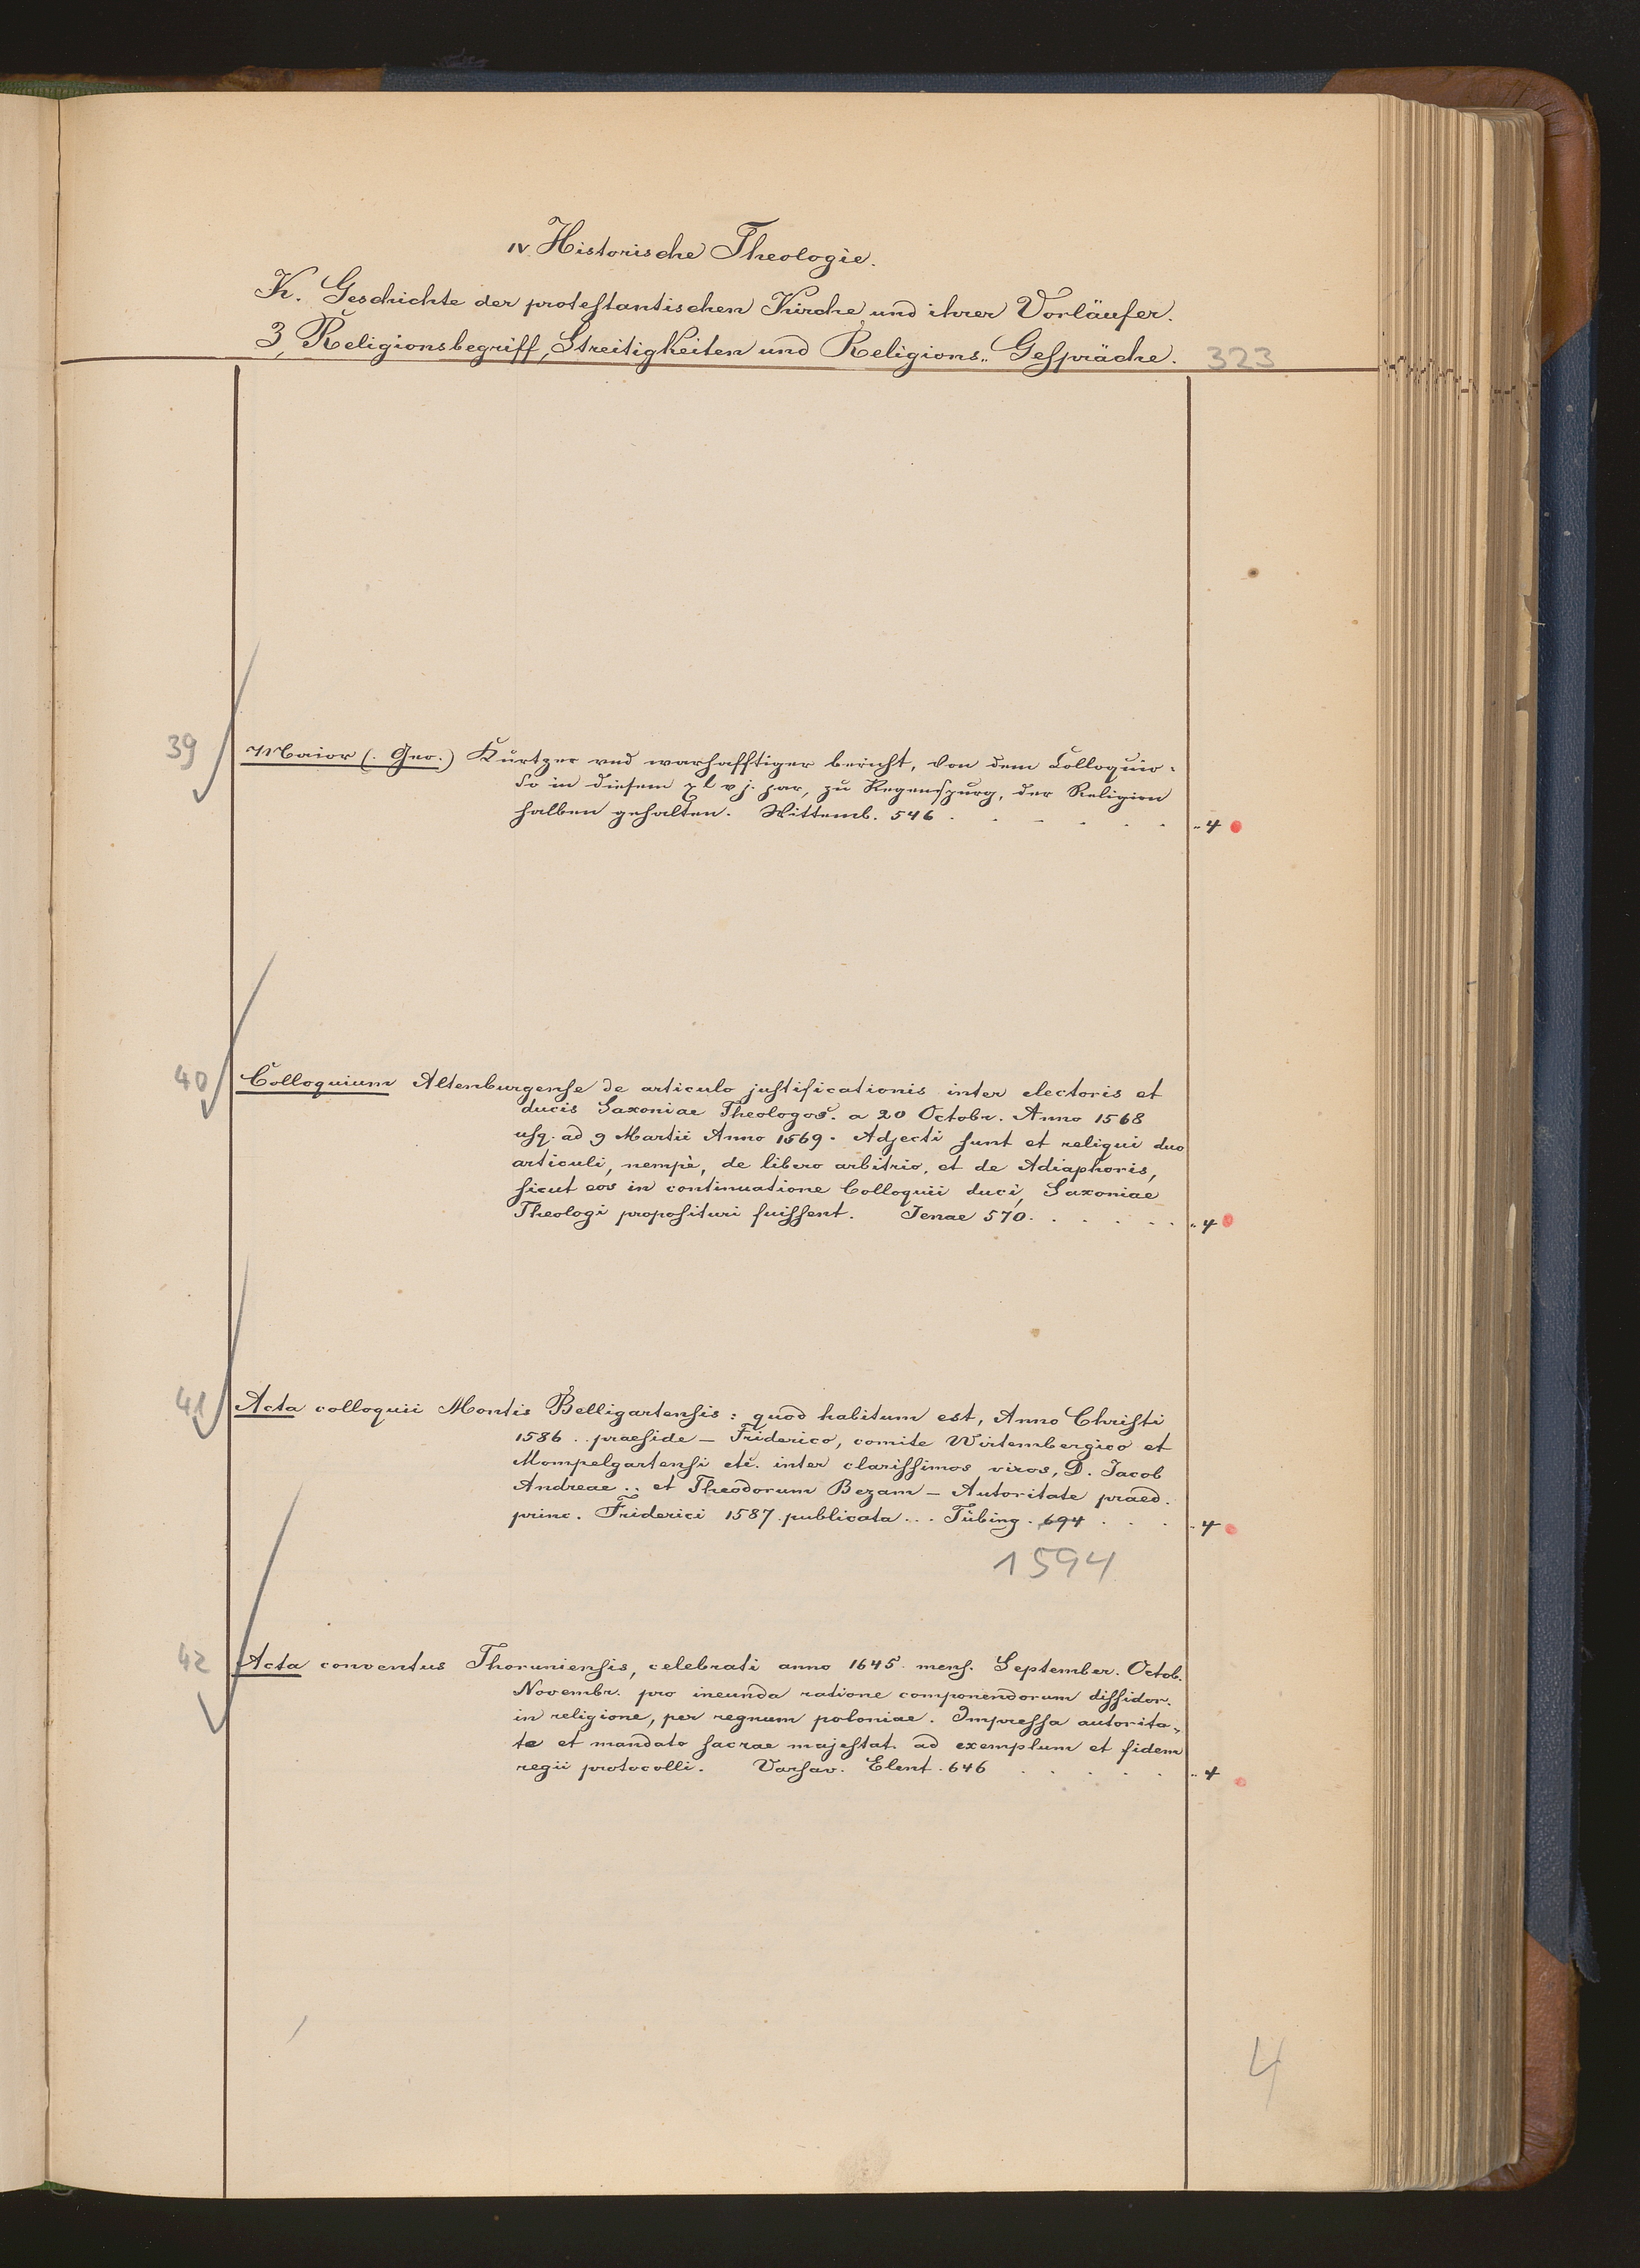 IV. Historische Theologie.
K. Geschichte der protestantischen Kirche und ihrer Vorläufer.
3, Religionsbegriff, Streitigkeiten und Religions„ Gespräche. 323
39 Maior (. Geo.) Kurtzer vnd warhafftiger bericht, von dem Colloquio.
So in diesem xlvj. jar, zu Regenspurg, der Religion
halben gehalten. Wittemb. 546 . . . . . . „ 4
40 Colloquium Altenburgense de articulo justificationis inter electoris et
ducis Saxoniae Theologos. a 20 Octobr. Anno 1568
usq. ad 9 Martii Anno 1569. Adjecti sunt et reliqui duo
articuli, nempè, de libero arbitrio, et de Adiaphoris,
sicut eos in continuatione Colloquii duci, Saxoniae
Theologi proposituri fuissent. Jenae 570. . . . . . „ 4
41 Acta colloquii Montis Belligartensis: quod habitum est, Anno Christi
1586 .. praeside – Friderico, comite Wirtembergico et
Mompelgartensi etc. inter clarissimos viros, D. Jacob
Andreae .. et Theodorum Bezam – Autoritate praed.
princ. Friderici 1587 publicata ... Tübing. 694 . . . „ 4
1594
42 Acta conventus Thoruniensis, celebrati anno 1645 mens. September. Octob.
Novembr. pro ineunda ratione componendorum dissidor.
in religione, per regnum poloniae. Impressa autorita„
te et mandato sacrae majestat. ad exemplum et fidem
regii protocolli. Varsav. Elent. 646 . . . . . „ 4
4